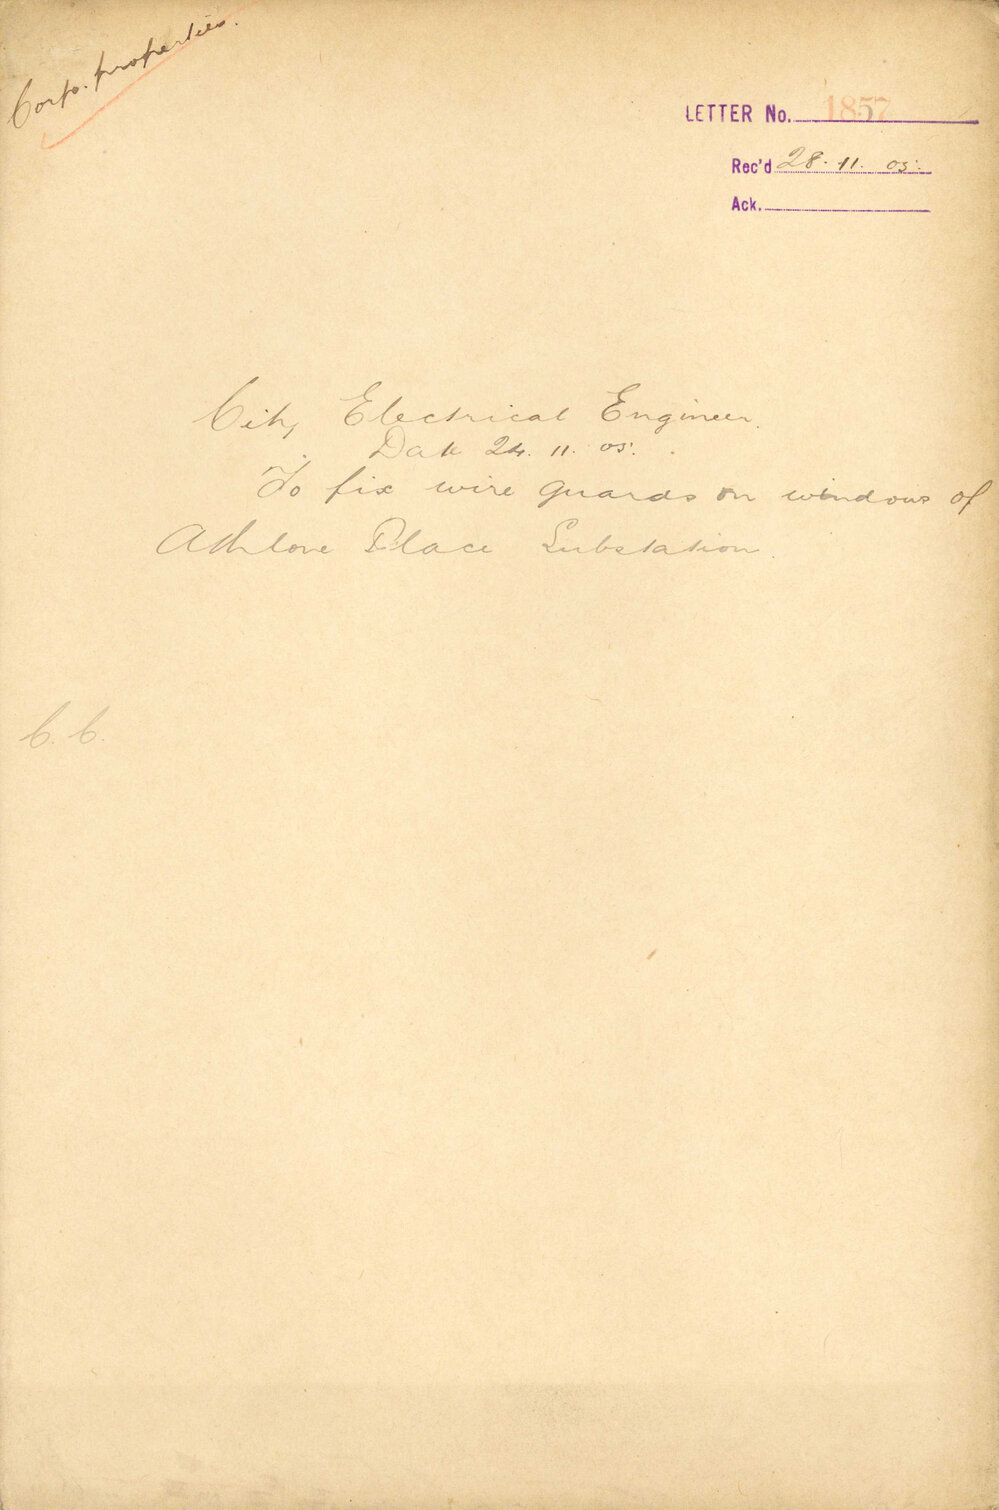 Corp. properties.
LETTER No. 1857
Rec'd 28. 11. 05.
Ack.
City Electrical Engineer.
Date 24. 11. 05.
To fix wire guards on windows of
Athlone Place Substation.
C. C.